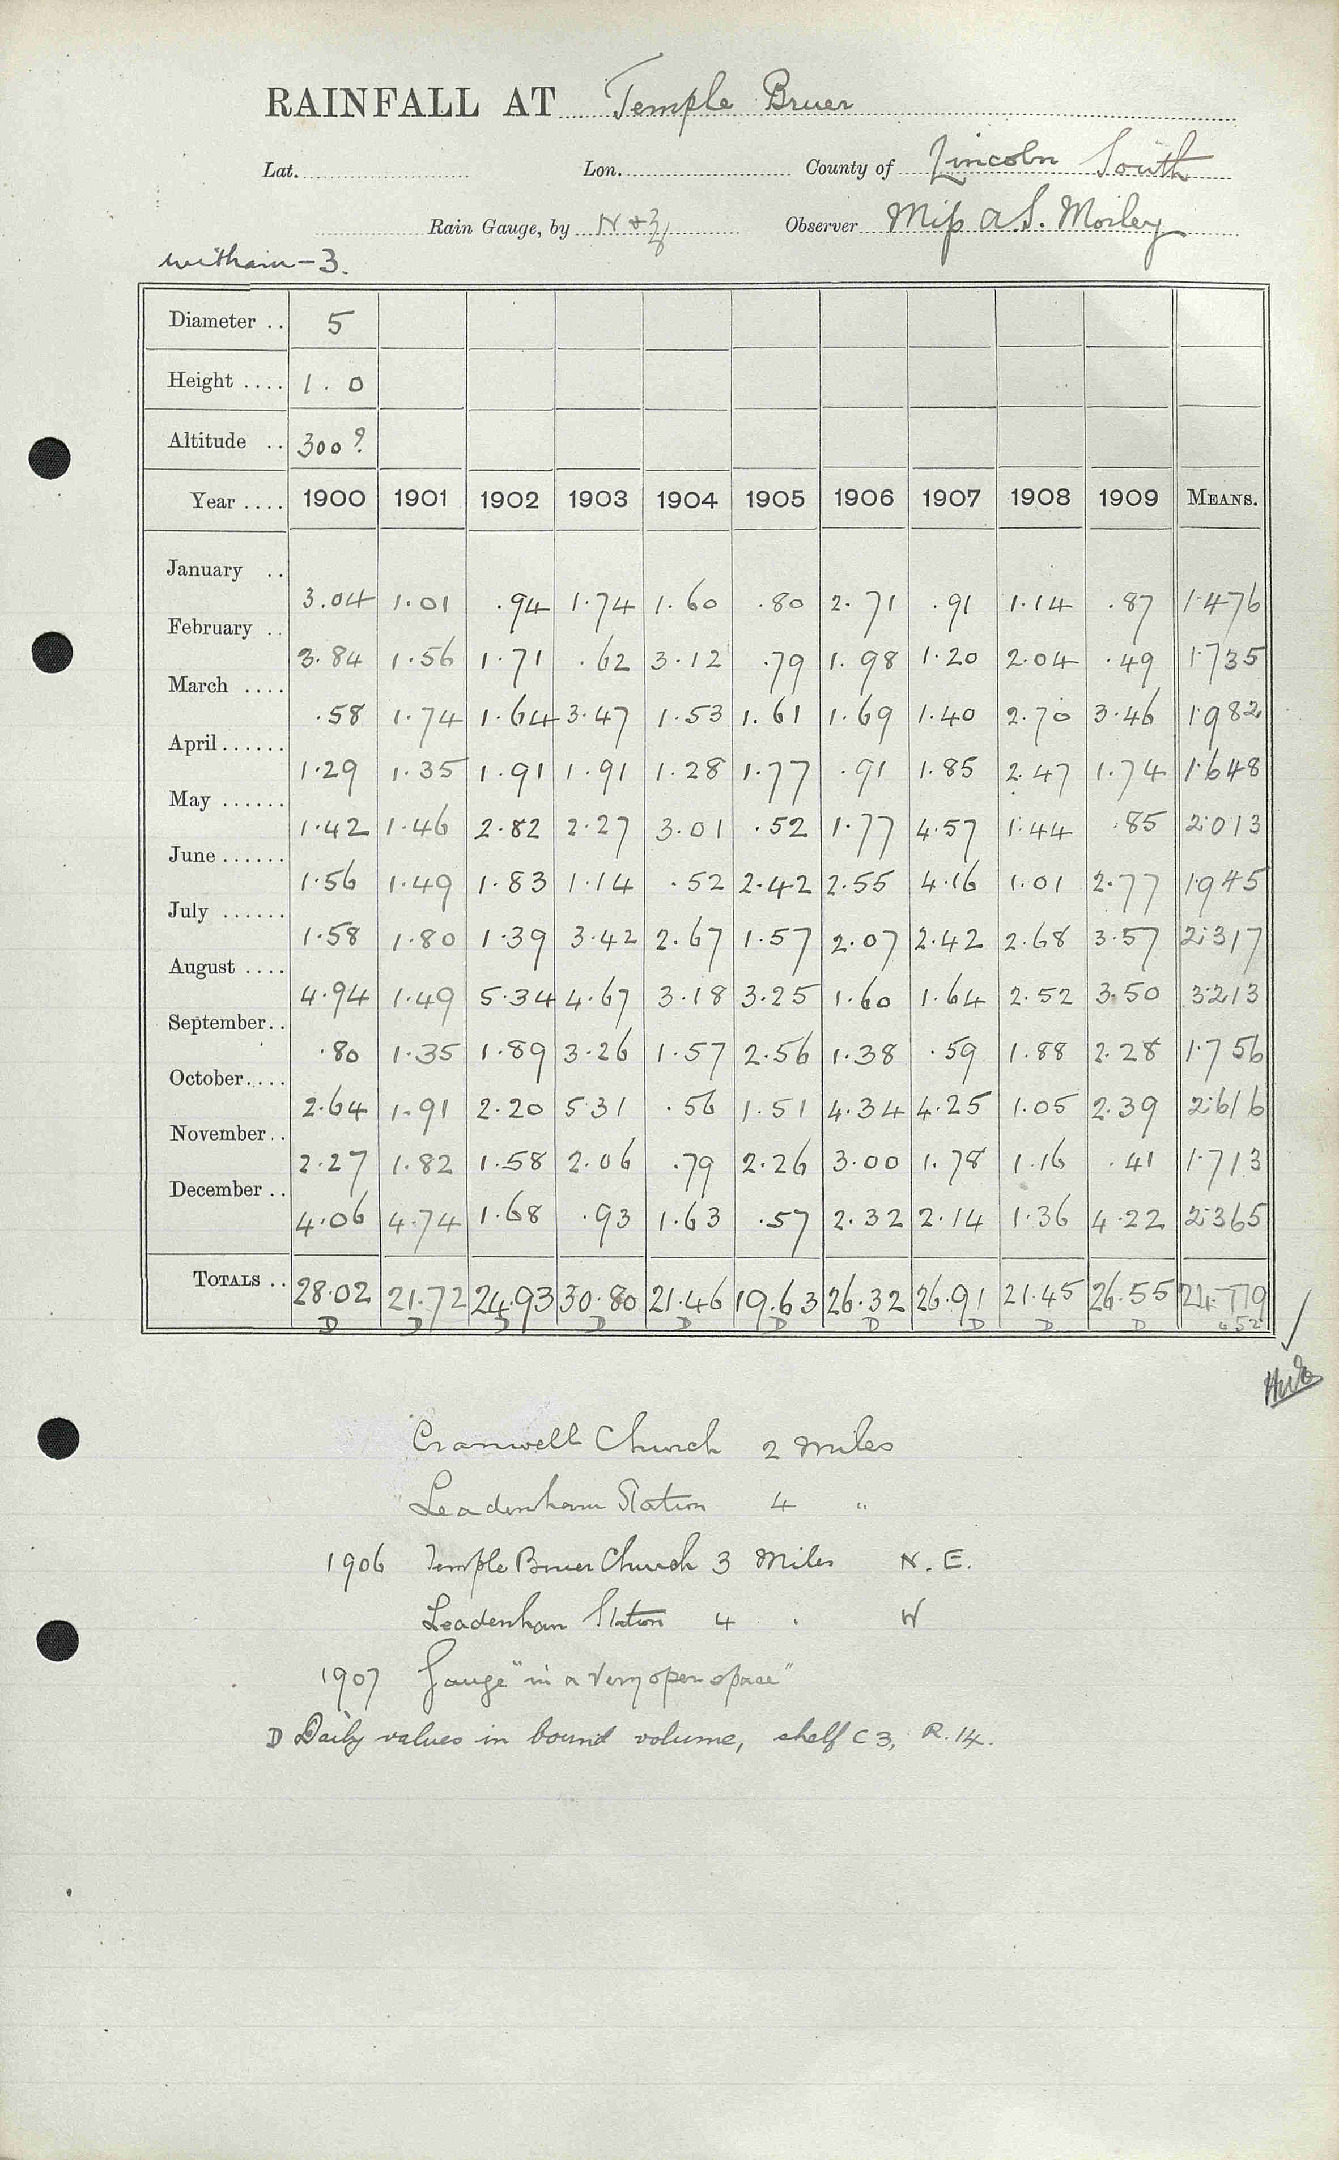 RAINFALL AT Temple Bruer
Lat. Lon. County of Lincoln South
Rain Gauge, by N & Z Observer Miss A.S. Morley
Witham-3.
Diameter .. 5
Height .... 1.0
Altitude .. 300?
Year .... 1900 1901 1902 1903 1904 1905 1906 1907 1908 1909 MEANS.
January .. 3.04 1.01 .94 1.74 1.60 .80 2.71 .91 1.14 .87 1.476
February .. 3.84 1.56 1.71 .62 3.12 .79 1.98 1.20 2.04 .49 1.735
March .... .58 1.74 1.64 3.47 1.53 1.61 1.69 1.40 2.70 3.46 1.982
April ...... 1.29 1.35 1.91 1.91 1.28 1.77 .91 1.85 2.47 1.74 1.648
May ...... 1.42 1.46 2.82 2.27 3.01 .52 1.77 4.57 1.44 .85 2.013
June ...... 1.56 1.49 1.83 1.14 .52 2.42 2.55 4.16 1.01 2.77 1.945
July ...... 1.58 1.80 1.39 3.42 2.67 1.57 2.07 2.42 2.68 3.57 2.317
August .... 4.94 1.49 5.34 4.67 3.18 3.25 1.60 1.64 2.52 3.50 3.213
September .. .80 1.35 1.89 3.26 1.57 2.56 1.38 .59 1.88 2.28 1.756
October .... 2.64 1.91 2.20 5.31 .56 1.51 4.34 4.25 1.05 2.39 2.616
November .. 2.27 1.82 1.58 2.06 .79 2.26 3.00 1.78 1.16 .41 1.713
December .. 4.06 4.74 1.68 .93 1.63 .57 2.32 2.14 1.36 4.22 2.365
TOTALS .. 28.02 21.72 24.93 30.80 21.46 19.63 26.32 26.91 21.45 26.55 24.779
D D D D D D D D D D
Cranwell Church 2 miles
Leadenham Station 4 "
1906 Temple Bruer Church 3 Miles N.E.
Leadenham Station 4 . W
1907 Gauge "in a very open space"
D Daily values in bound volume, shelf C3, R.14.